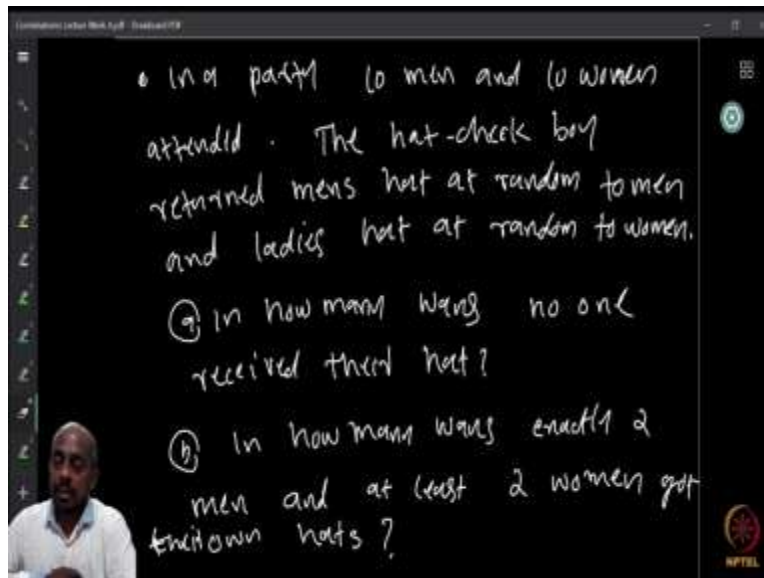 In a party 10 men and 10 women
attended. The hat-check boy
returned mens hat at random to men
and ladies hat at random to women.
(a) in how many ways no one
received their hat?
(b) In how many ways exactly 2
men and at least 2 women got
their own hats?
NPTEL